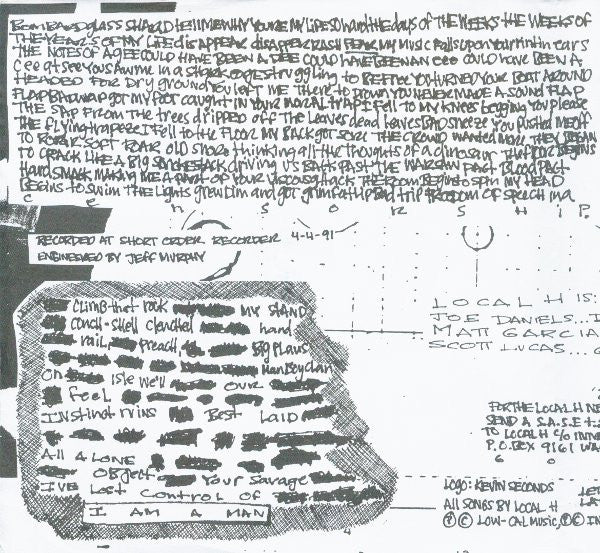 BOMBARD glass SHARD tell me WHY YOU'RE MY LIFE SO hard the days of THE WEEKS THE WEEKS OF
THE YEARS OF MY LIFE is APPEAR disAPPEAR RASH FEAR MY MUSIC Falls upon Your tin ears
THE NOTES OF A GEE COULD HAVE BEEN A DEE COULD HAVE BEEN AN CEE COULD HAVE BEEN A
in a shark cage struggling to BEFREE YOU TURNED YOUR BOAT AROUND
HEADED FOR DRY ground YOU LEFT ME THERE TO Drown YOU NEVER MADE A SOUND FLAP
FLAP got MY Foot caught in YOUR MORAL TRAP I FELL TO MY KNEES begging You please
THE SAP FROM THE trees dripped OFF THE Leaves dead Leaves sneeze You pushed ME OFF
THE flying trapeze I FELL to the FLOOR MY BACK got SORE THE CROWD WANTED MORE THEY BEGAN
TO ROAR SOFT ROAR OLD SNORE thinking all the thoughts of a dinosaur BEGINS
TO CRACK LIKE A BIG SMOKESTACK driving its BACK PAST THE WARSAW PACT Blood Pact
Hand SMACK MAKING ME A PART OF YOUR VICIOUS ATTACK THE ROOM BEGINS to spin MY HEAD
Begins to swim THE Lights grew Dim and got grim trip FREEDOM OF SPEECH in a
C e n s o R S H I P.
RECORDED AT SHORT ORDER RECORDER 4-4-91
ENGINEERED BY JEFF MURPHY
CLIMB that rock MY STAND
conch-shell clenched hand
rail, preach, Big Plans
Man Boy Clan
On Isle we'll OUR
feel
INstinct ruins Best Laid
All 4 LONE
OBJect Your Savage
I'VE Lost Control OF
I AM A MAN
LOCAL H IS:
JOE DANIELS...
MATT GARCIA
SCOTT LUCAS...
FOR THE LOCAL H NE
SEND A S.A.S.E to
TO LOCAL H C/O
P.O. BOX 9161 WA
6 0
LOGO: KEVIN SECONDS
All SONGS BY LOCAL H
Ⓟ © LOW-CAL MUSIC, Ⓟ © IN